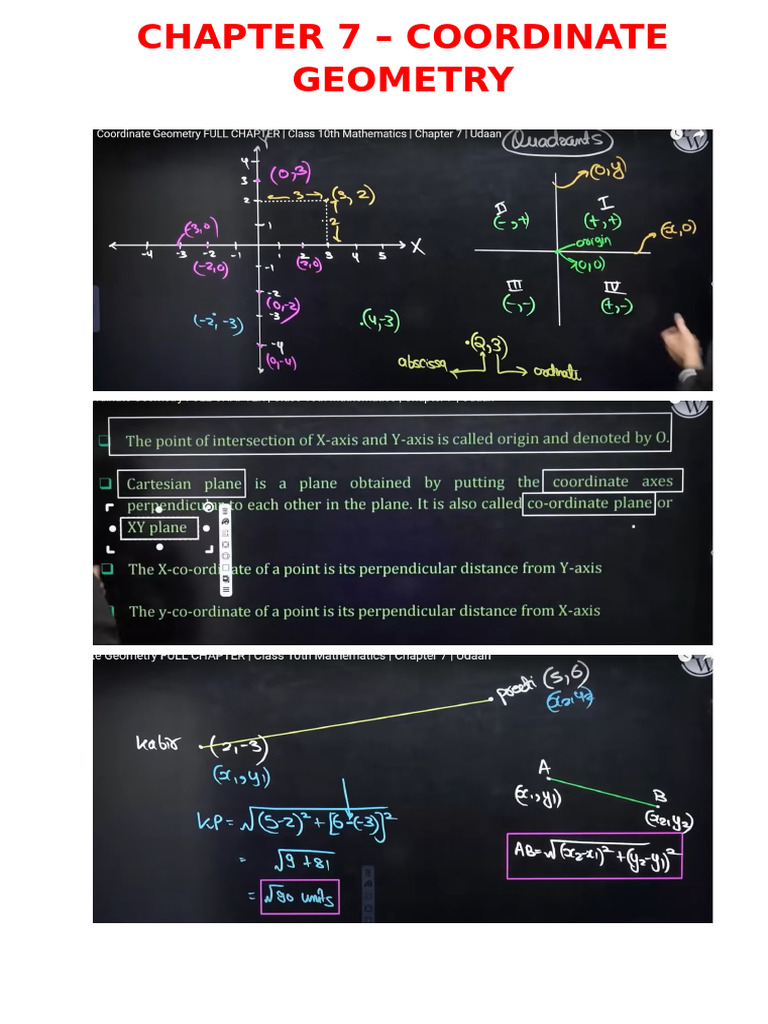 CHAPTER 7 – COORDINATE
GEOMETRY
Coordinate Geometry FULL CHAPTER | Class 10th Mathematics | Chapter 7 | Udaan
Quadrants
4
3
(0,3)
2
3
(3, 2)
2
1
(3,0)
-4 -3 -2 -1 1 2 3 4 5 X
(-2,0)
-1
(2,0)
-2
(0,-2)
-3
(-2, -3)
.(4,-3)
-4
(0,-4)
(0,y)
II
I
(-,+)
(+,+)
(x,0)
origin
(0,0)
III
IV
(-,-)
(+,-)
.(2,3)
abscissa
ordinate
The point of intersection of X-axis and Y-axis is called origin and denoted by O.
Cartesian plane is a plane obtained by putting the coordinate axes
perpendicular to each other in the plane. It is also called co-ordinate plane or
XY plane
The X-co-ordinate of a point is its perpendicular distance from Y-axis
The y-co-ordinate of a point is its perpendicular distance from X-axis
te Geometry FULL CHAPTER | Class 10th Mathematics | Chapter 7 | Udaan
preeti (5,6)
(x2,y2)
Kabir (2,-3)
(x1,y1)
KP = √(5-2)² + [6-(-3)]²
= √9 + 81
= √90 units
A
(x1,y1)
B
(x2,y2)
AB = √(x2-x1)² + (y2-y1)²